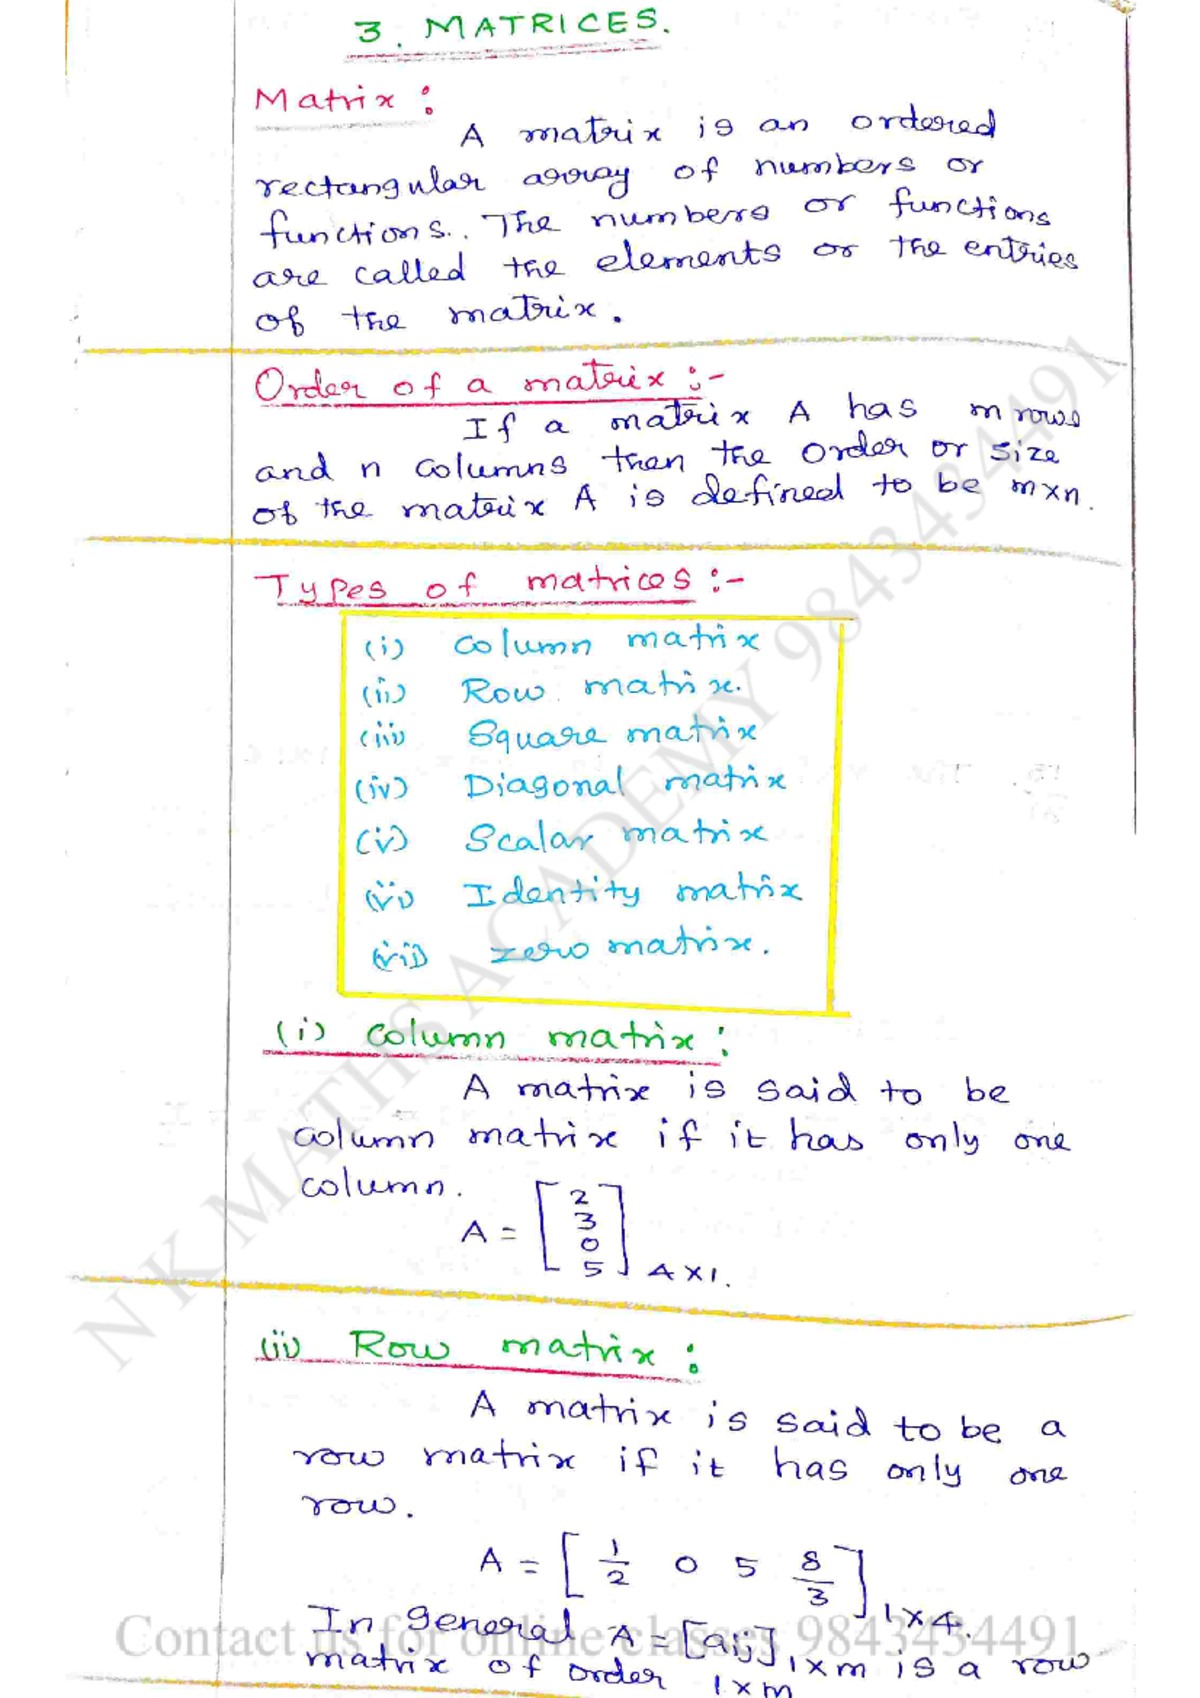 3. MATRICES.
Matrix :
A matrix is an ordered
rectangular array of numbers or
functions.. The numbers or functions
are called the elements or the entries
of the matrix.
Order of a matrix :-
If a matrix A has m rows
and n columns then the order or size
of the matrix A is defined to be m×n.
Types of matrices :-
(i) Column matrix
(ii) Row matrix.
(iii) Square matrix
(iv) Diagonal matrix
(v) Scalar matrix
(vi) Identity matrix
(vii) zero matrix.
(i) Column matrix :
A matrix is said to be
column matrix if it has only one
column.
A = [2
3
0
5] 4×1.
(ii) Row matrix :
A matrix is said to be a
row matrix if it has only one
row.
A = [1/2 0 5 8/3] 1×4.
In general A = [aij] 1×m is a row
matrix of order 1×m
N K MATHS ACADEMY 9843434491
Contact us for online classes 9843434491